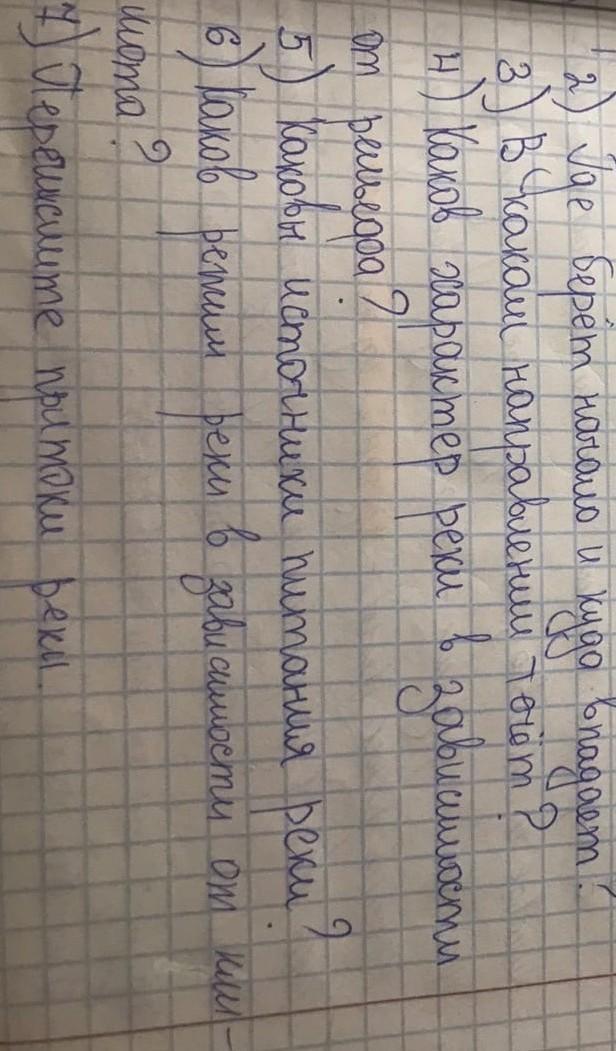 2) Где берёт начало и куда впадает?
3) В каком направлении течёт?
4) Каков характер реки в зависимости
от рельефа?
5) Каковы источники питания реки?
6) Каков режим реки в зависимости от кли-
мата?
7) Перечислите притоки реки.